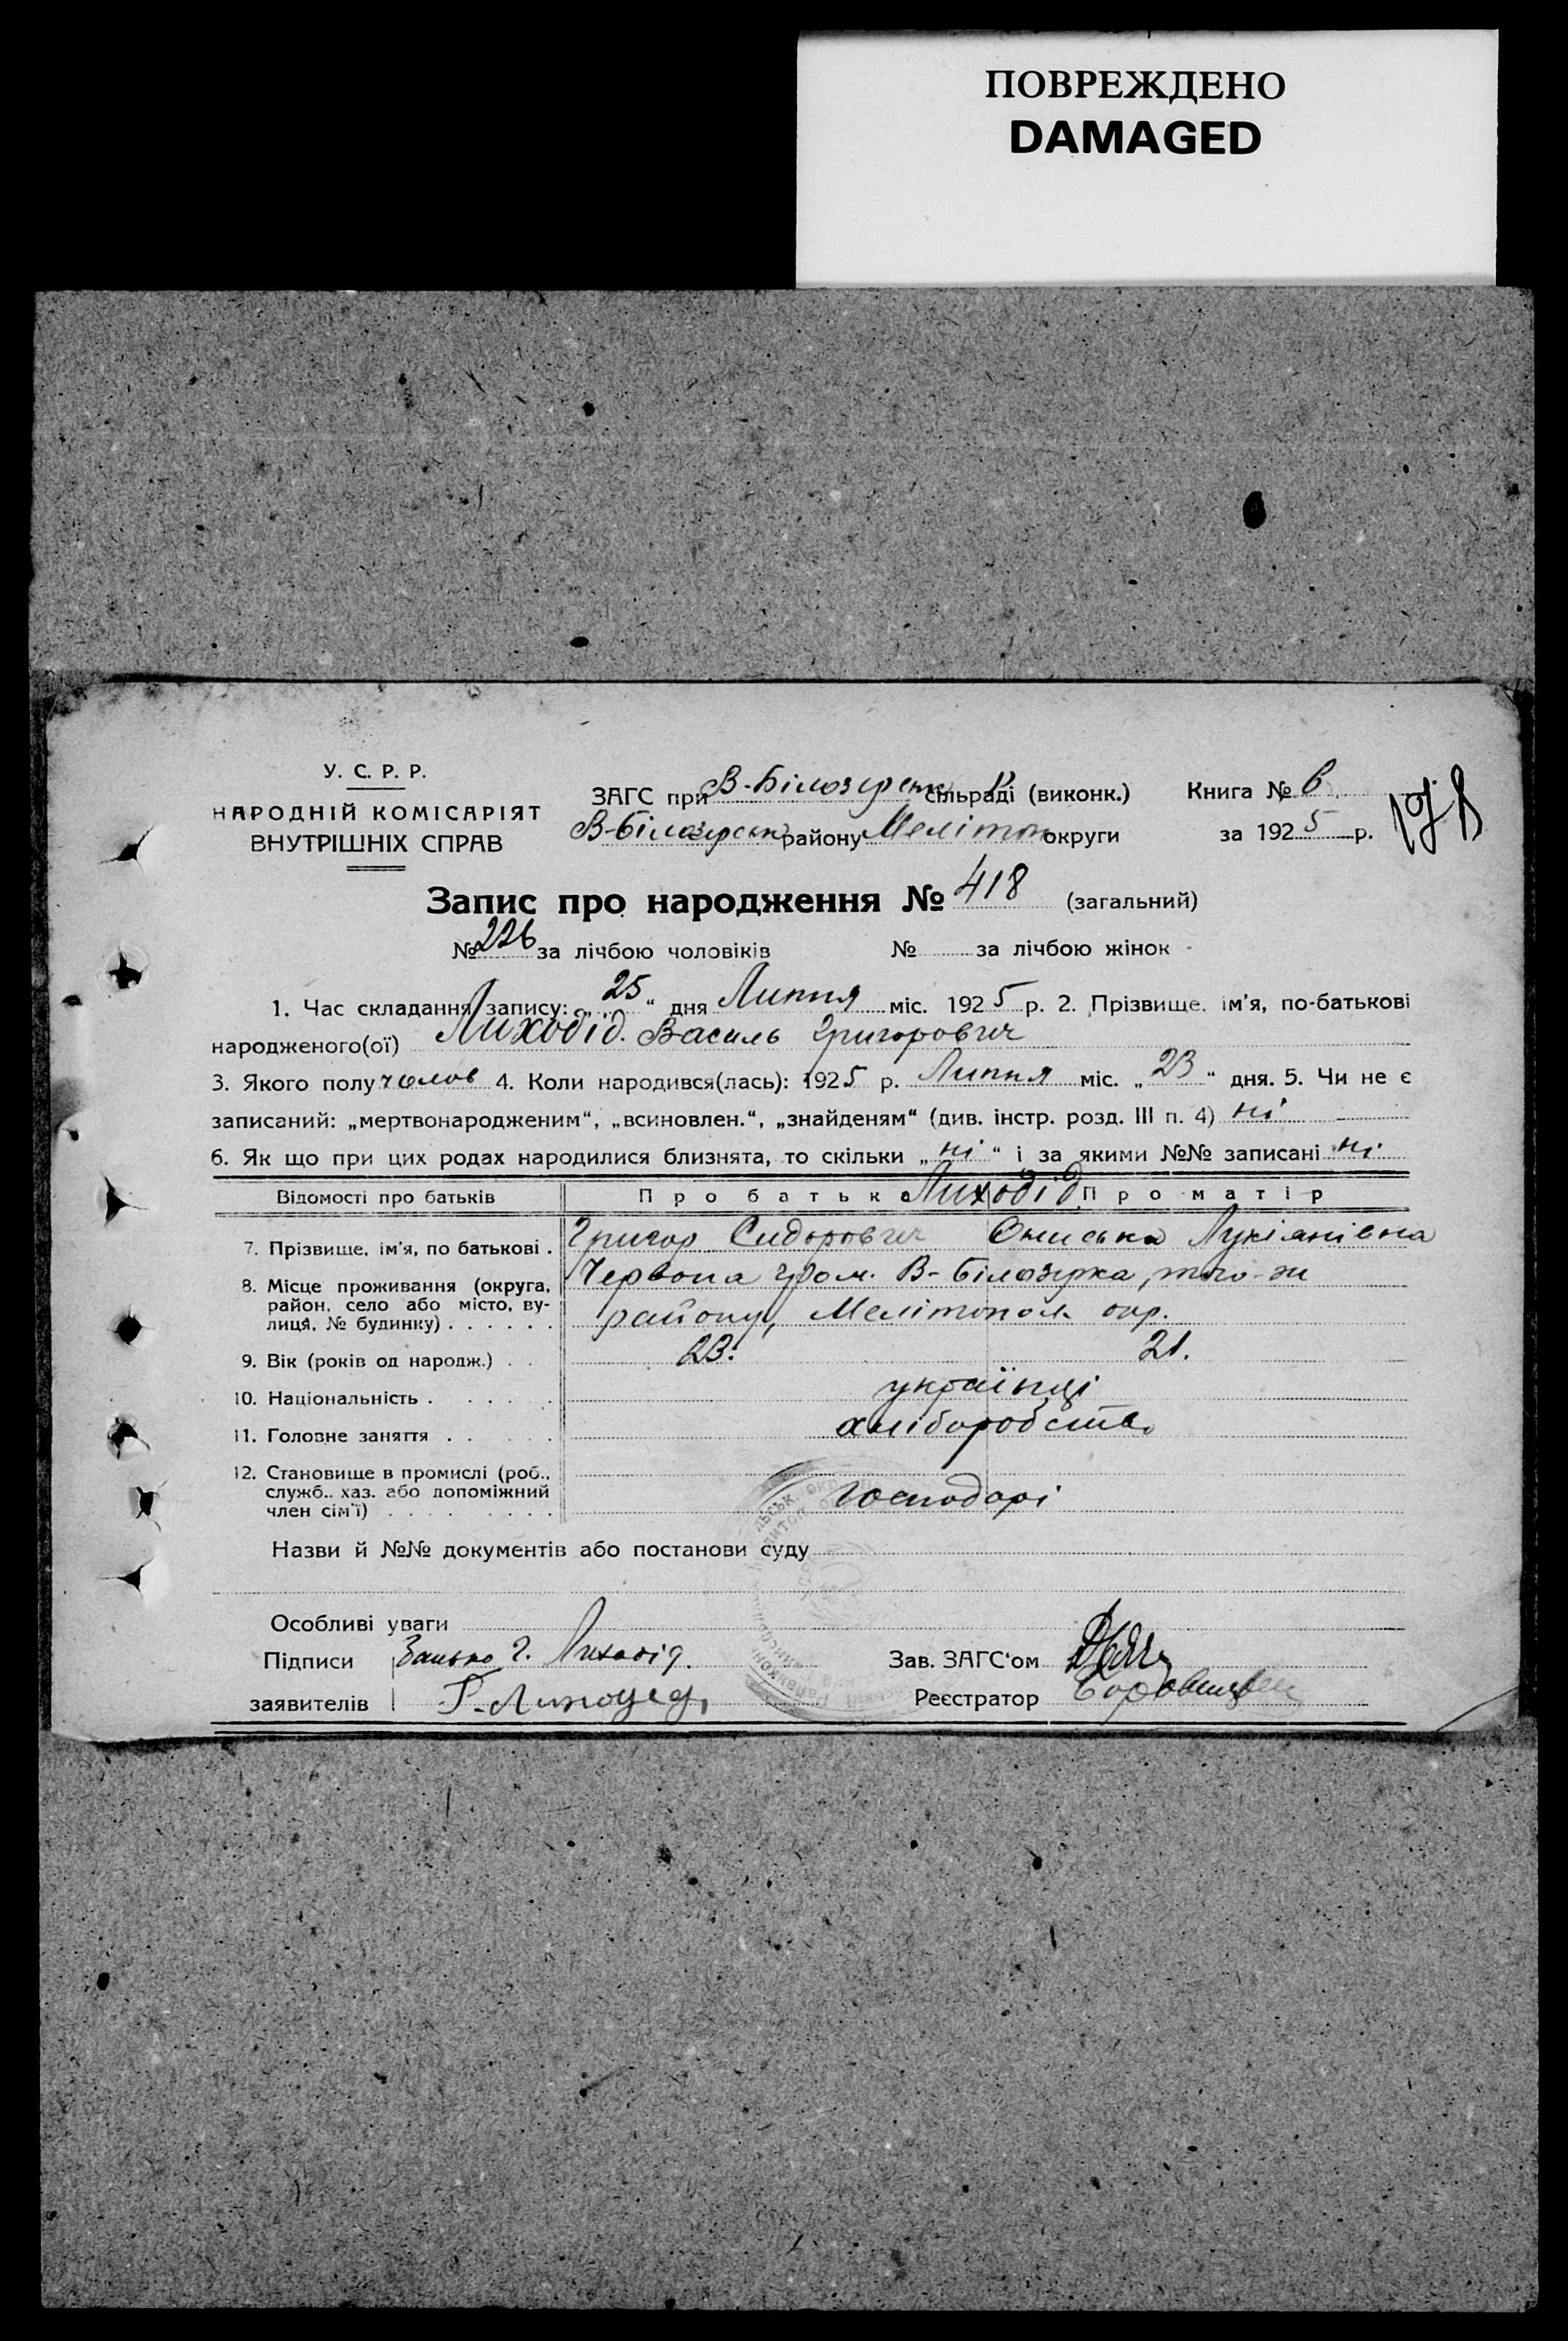 ПОВРЕЖДЕНО
DAMAGED
У. С. Р. Р.
НАРОДНІЙ КОМІСАРІЯТ
ВНУТРІШНІХ СПРАВ
ЗАГС при В-Білозерськ сільраді (виконк.) Книга № 6
В-Білозерськ району Мелітоп округи за 1925 р.
178
Запис про народження № 418 (загальний)
№ 226 за лічбою чоловіків № за лічбою жінок
1. Час складання запису: „25“ дня Липня міс. 1925 р. 2. Прізвище, ім'я, по-батькові
народженого(ої) Лиходід Василь Григорович
3. Якого полу челов 4. Коли народився(лась): 1925 р. Липня міс. „23“ дня. 5. Чи не є
записаний: „мертвонародженим“, „всиновлен.“, „знайденям“ (див. інстр. розд. III п. 4) ні
6. Як що при цих родах народилися близнята, то скільки „ні“ і за якими №№ записані ні
Відомості про батьків Про батька Лиходід Про матір
7. Прізвище, ім'я, по батькові . Григор Сидорович Ониська Лукіянівна
8. Місце проживання (округа, район, село або місто, вулиця, № будинку) . . . . . . Червона гром. В-Білозерка, того-ж
району, Мелітополь окр.
9. Вік (років од народж.) . . 23. 21.
10. Національність . . . . . . українці
11. Головне заняття . . . . . хліборобство
12. Становище в промислі (роб., служб., хаз. або допоміжний член сім'ї) . . . . . . . . господарі
Назви й №№ документів або постанови суду
Особливі уваги
Підписи Г. Лиходід. Зав. ЗАГС'ом
заявителів Г. Лиходед Реєстратор